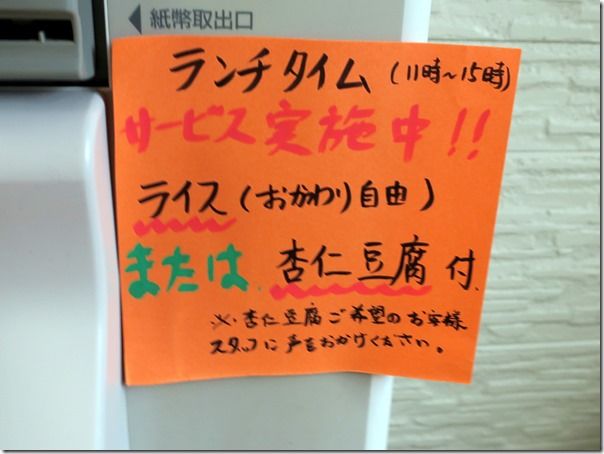 ◀ 紙幣取出口
ランチタイム (11時～15時)
サービス実施中!!
ライス (おかわり自由)
または 杏仁豆腐付
※・杏仁豆腐ご希望のお客様
スタッフに声をおかけください。